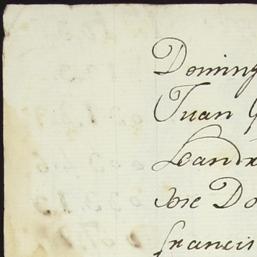 Doming
Juan G
Leandr
Jose Do
francis